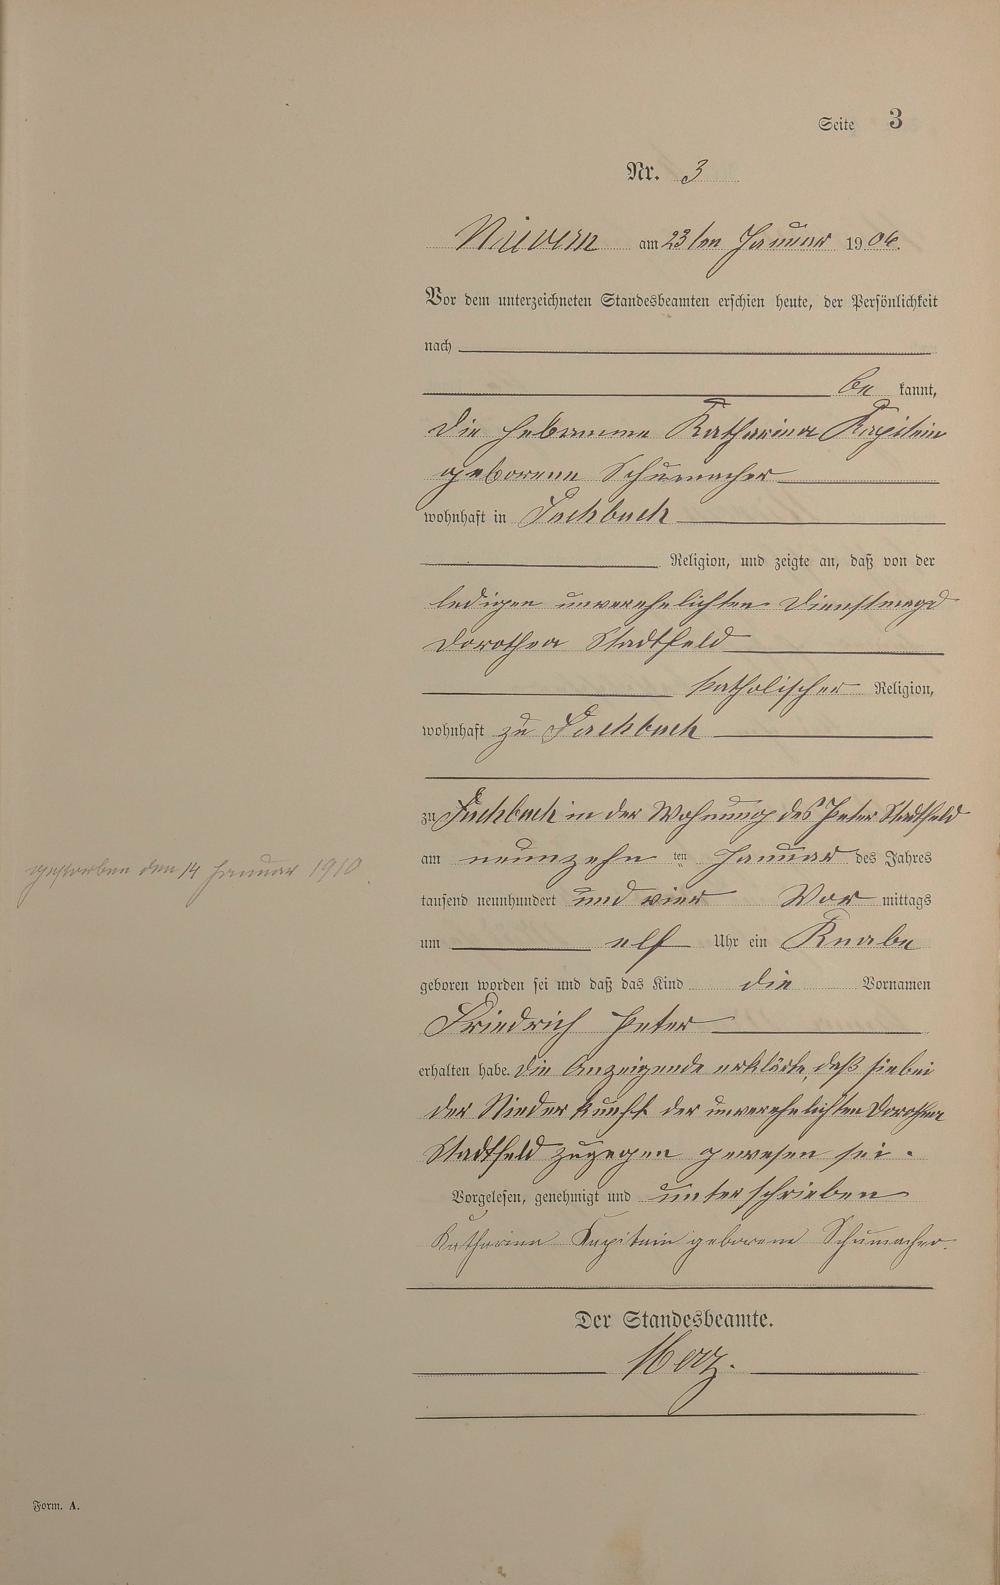 Seite 3
Nr. 3
Nievern am 23ten Januar 1904.
Vor dem unterzeichneten Standesbeamten erschien heute, der Persönlichkeit
nach
be kannt,
die Hebamme Katharina Kapitein
geborene Schumacher
wohnhaft in Fachbach
Religion, und zeigte an, daß von der
ledigen unverehelichten Dienstmagd
Dorothea Stadtfeld
katholischer Religion,
wohnhaft zu Fachbach
zu Fachbach in der Wohnung des Peter Stadtfeld
am neunzehn ten Januar des Jahres
gestorben den 14 Januar 1910
tausend neunhundert und vier Vor mittags
um elf Uhr ein Knabe
geboren worden sei und daß das Kind die Vornamen
Friedrich Peter
erhalten habe. Die Anzeigende erklärte, daß sie bei
der Niederkunft der unverehelichten Dorothea
Stadtfeld zugegen gewesen sei.
Vorgelesen, genehmigt und unterschrieben
Katharina Kapitain geborene Schumacher.
Der Standesbeamte.
Form. A.